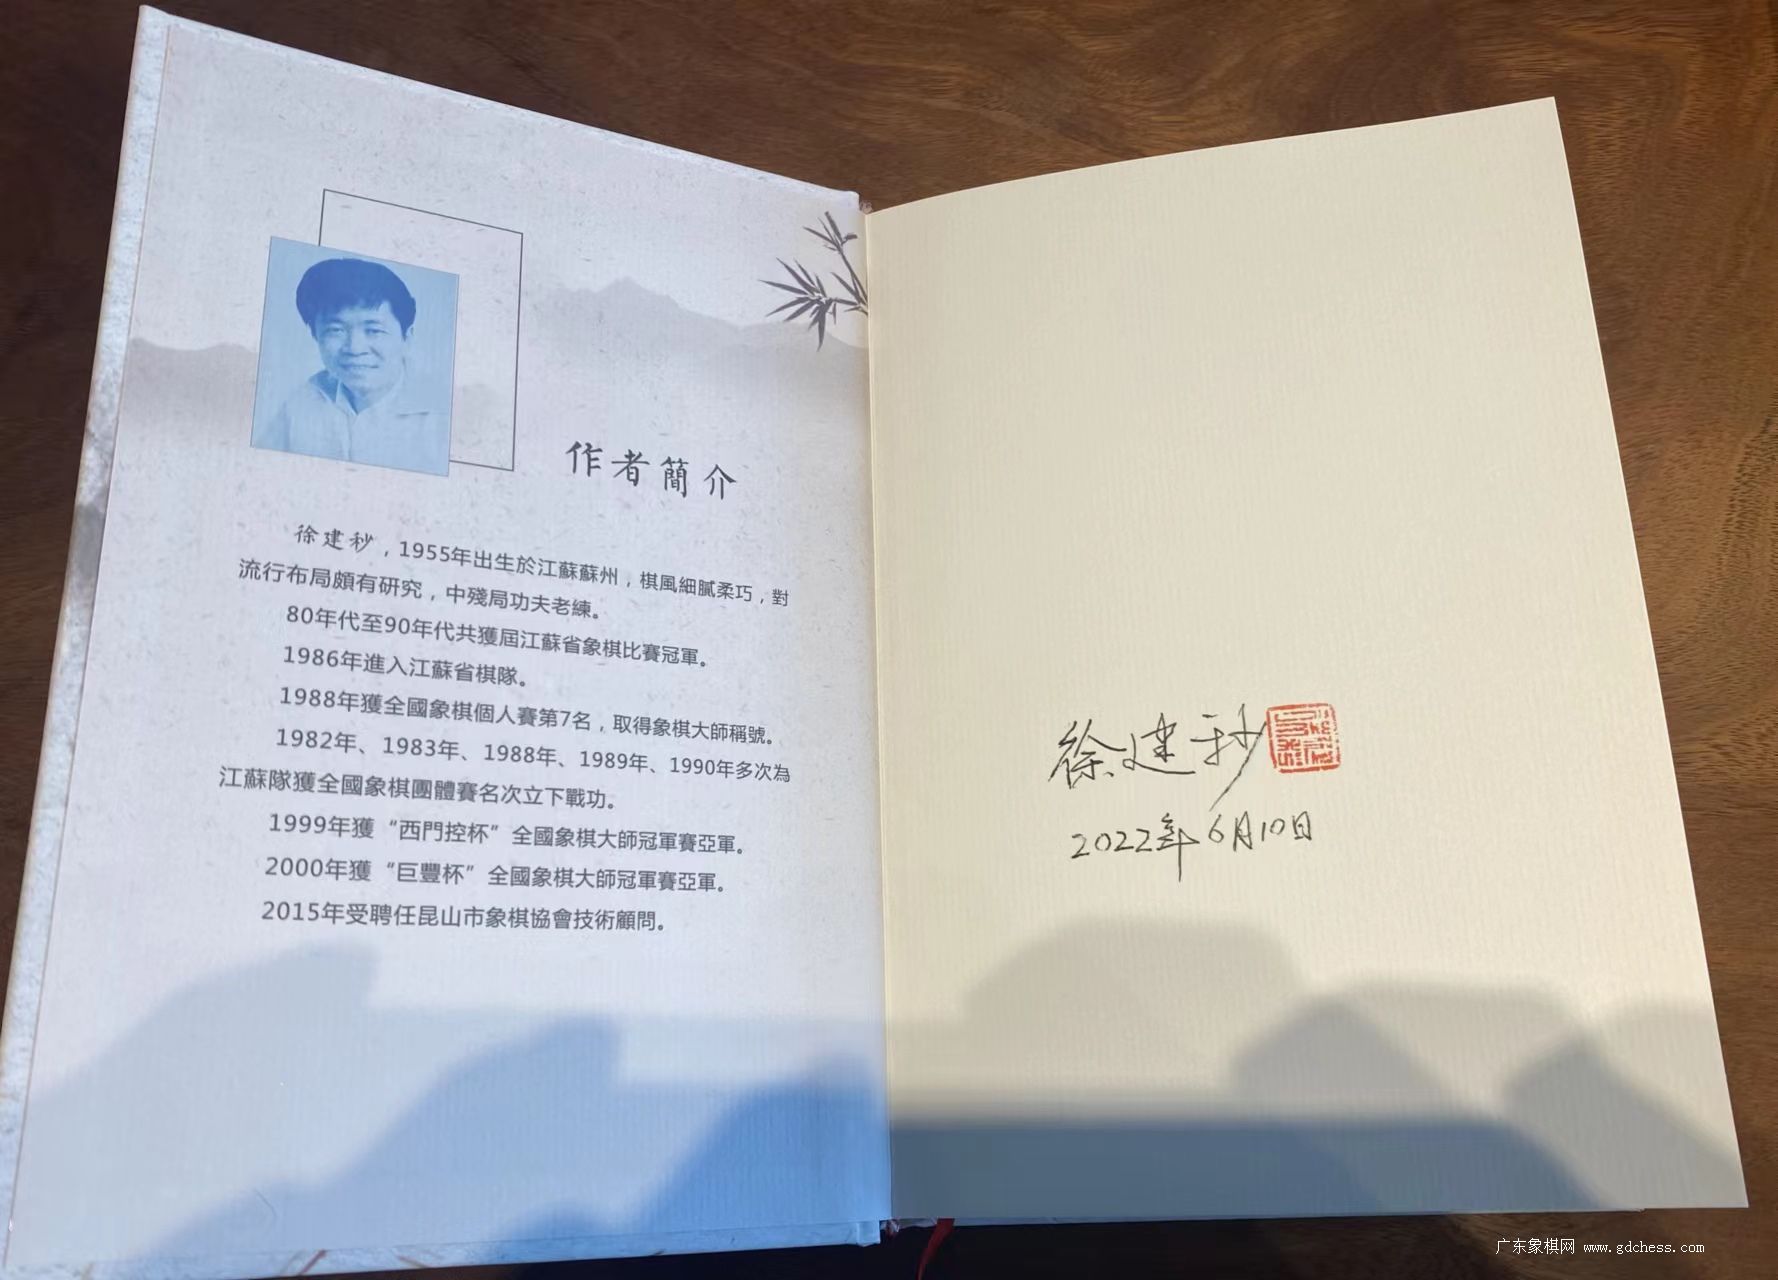 作者簡介
徐建秒，1955年出生於江蘇蘇州，棋風細膩柔巧，對
流行布局頗有研究，中殘局功夫老練。
80年代至90年代共獲屆江蘇省象棋比賽冠軍。
1986年進入江蘇省棋隊。
1988年獲全國象棋個人賽第7名，取得象棋大師稱號。
1982年、1983年、1988年、1989年、1990年多次為
江蘇隊獲全國象棋團體賽名次立下戰功。
1999年獲“西門控杯”全國象棋大師冠軍賽亞軍。
2000年獲“巨豐杯”全國象棋大師冠軍賽亞軍。
2015年受聘任昆山市象棋協會技術顧問。
徐建秒
2022年6月10日
广东象棋网 www.gdchess.com